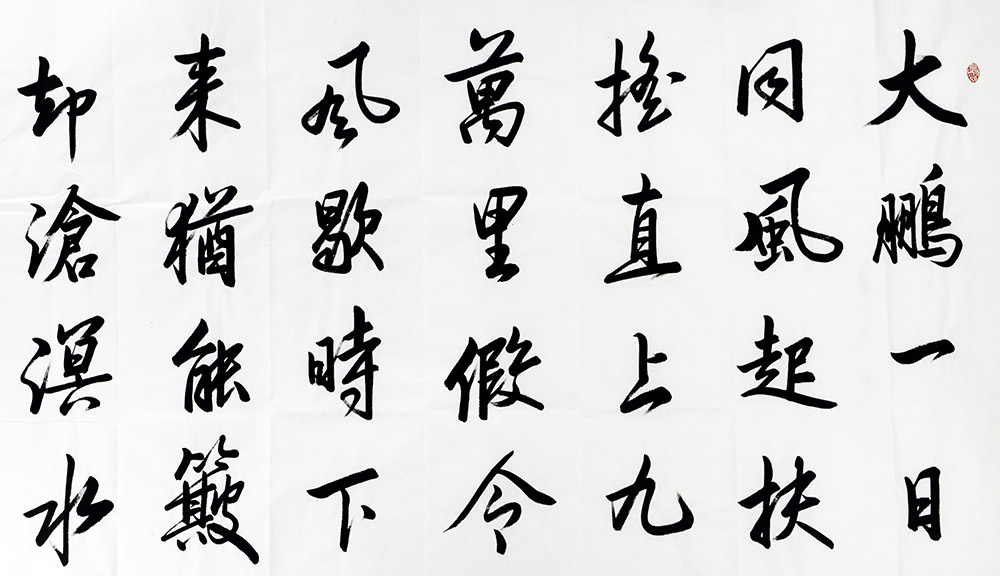 大鵬一日
同風起扶
搖直上九
萬里假令
风歇時下
来猶能簸
却滄溟水